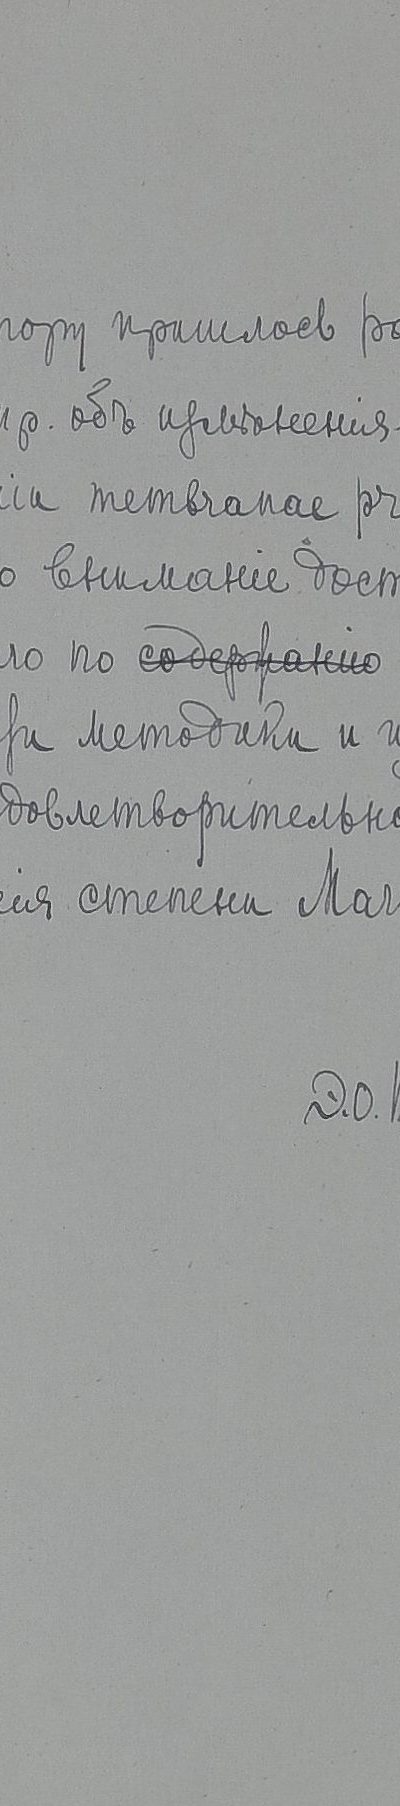 тору пришлось ра
пр. объ измѣненія
ніи
о вниманіе дост
ло по содержанію
ри методики и и
довлетворительно
нія степени Маг
Д.О.